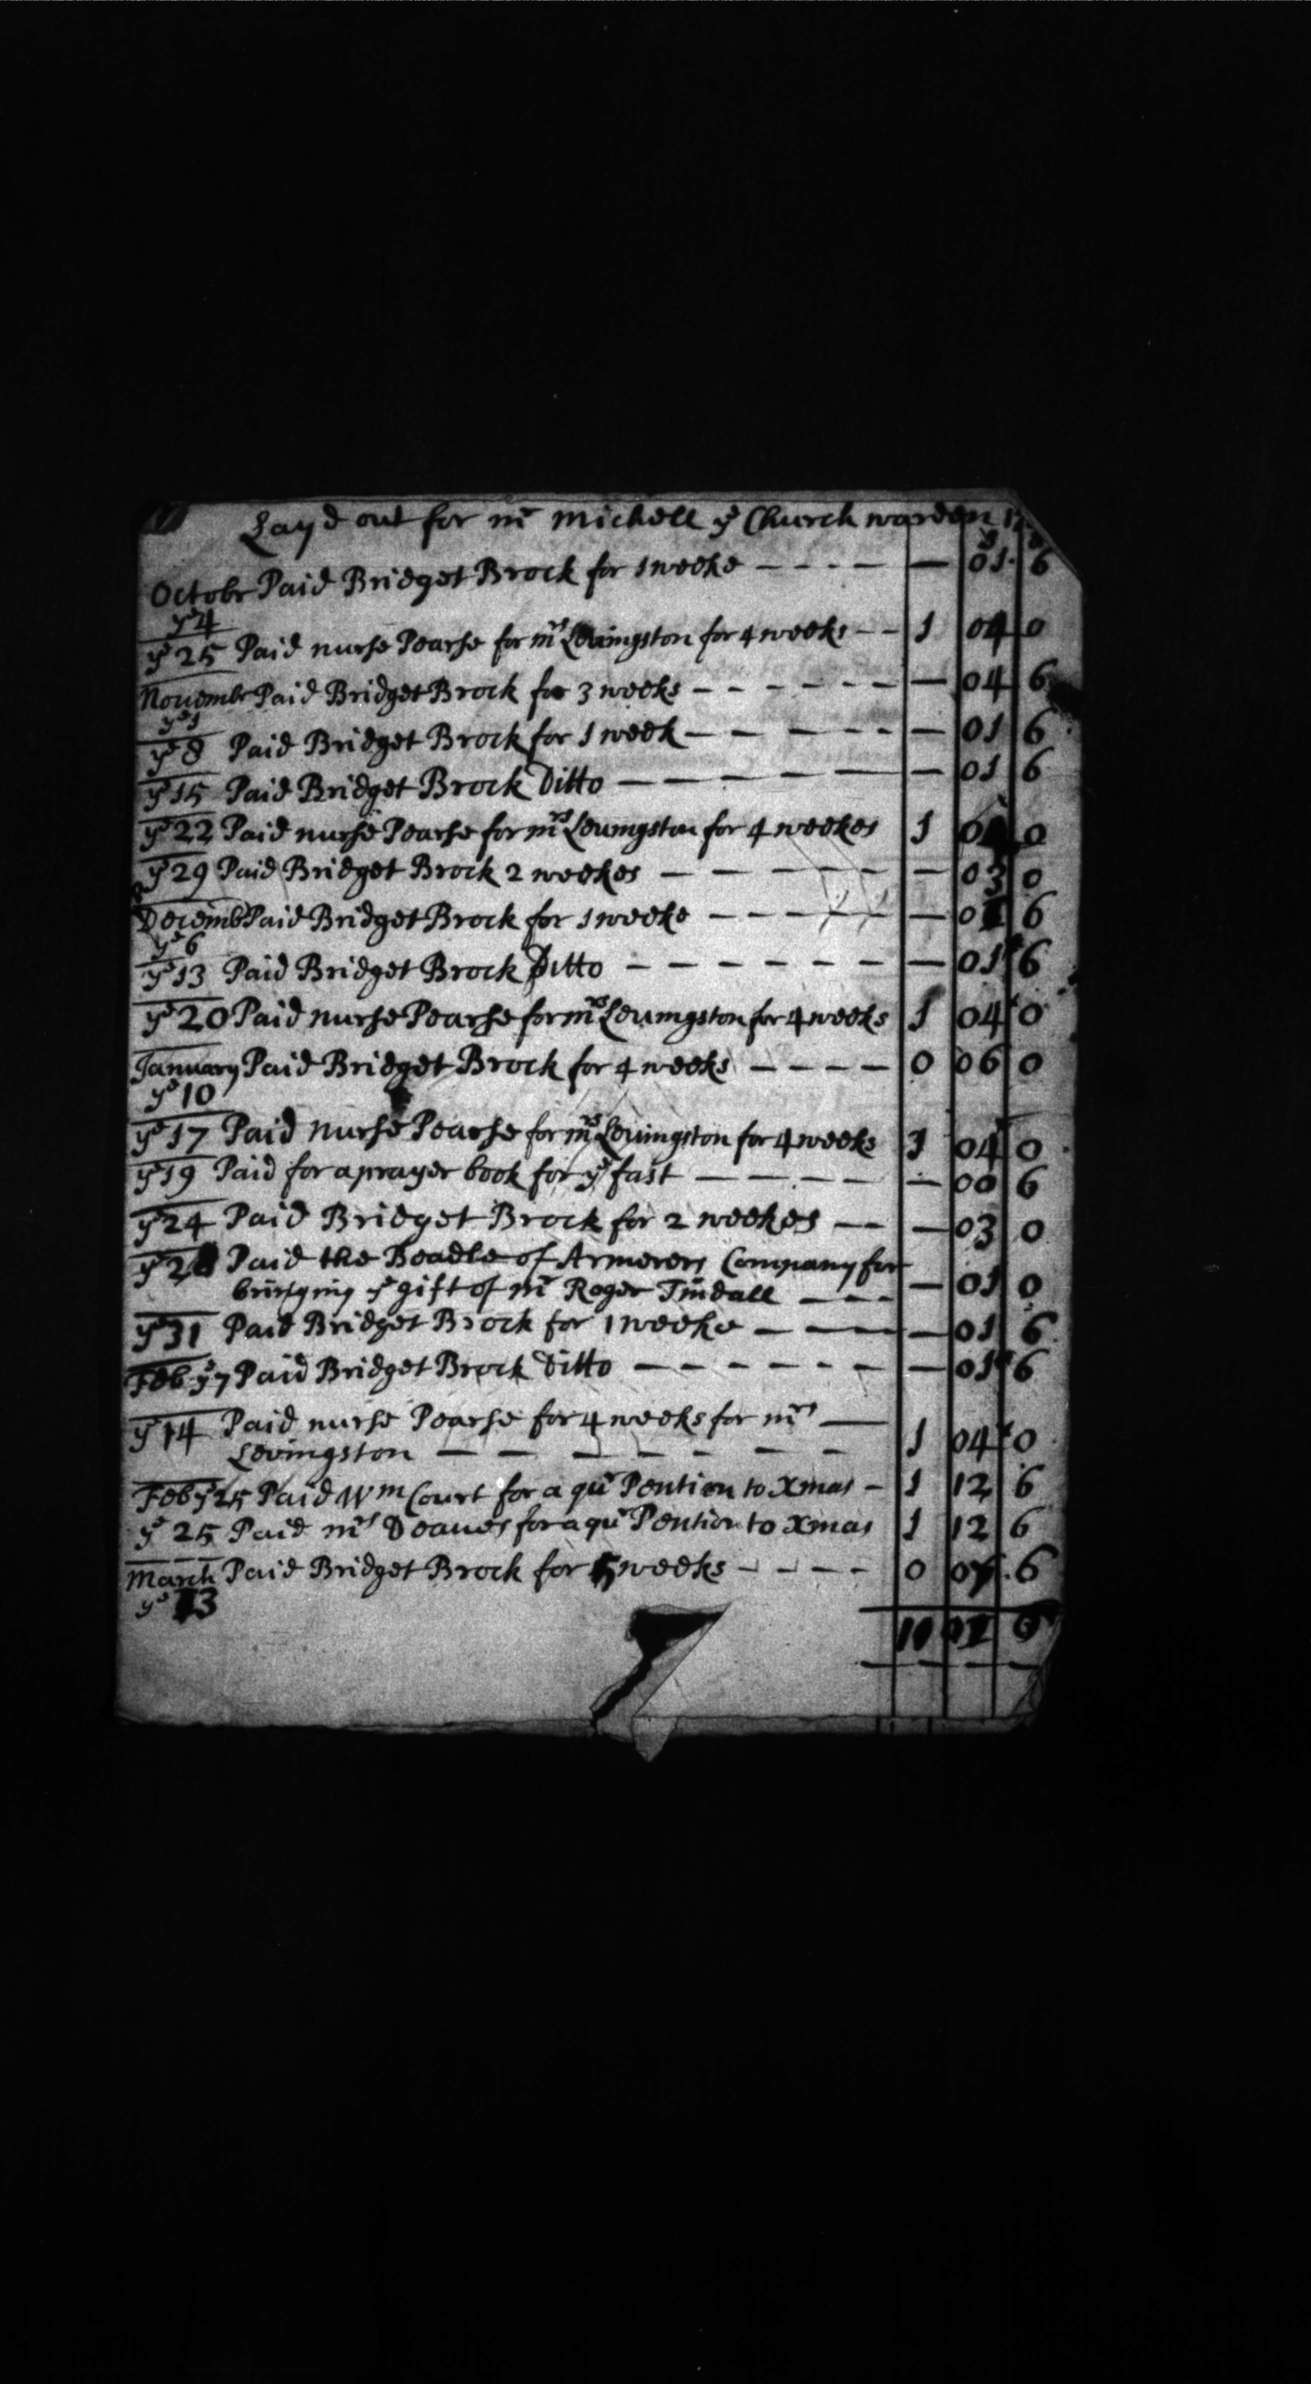 Layd out for mr Michell ye Church warden
Octobr Paid Bridget Brock for 1 weeke ---- — 01 6
ye 4
ye 25 Paid nurse Pearse for mrs Levingston for 4 weeks -- 1 04 0
Novembr Paid Bridget Brock for 3 weeks ------ — 04 6
ye 1
ye 8 Paid Bridget Brock for 1 week ----- — 01 6
ye 15 Paid Bridget Brock Ditto ----- — 01 6
ye 22 Paid nurse Pearse for mrs Levingston for 4 weekes 1 0
ye 29 Paid Bridget Brock 2 weekes ----- — 03 0
Decemb Paid Bridget Brock for 1 weeke ----- — 01 6
ye 6
ye 13 Paid Bridget Brock Ditto ------- — 01 6
ye 20 Paid nurse Pearse for mrs Levingston for 4 weeks 1 04 0
January Paid Bridget Brock for 4 weeks ---- 0 06 0
ye 10
ye 17 Paid Nurse Pearse for mrs Levingston for 4 weeks 1 04 0
ye 19 Paid for a prayer book for ye fast ----- — 00 6
ye 24 Paid Bridget Brock for 2 weekes -- — 03 0
ye Paid the Beadle of Armerers Company for
bringing ye gift of mr Roger Tindall --- — 01 0
ye 31 Paid Bridget Brock for 1 weeke --- — 01 6
Feb ye 7 Paid Bridget Brock Ditto ------ — 01 6
ye 14 Paid nurse Pearse for 4 weeks for mrs —
Levingston ------- 1 04 0
Feb ye 25 Paid Wm Court for a qu Pention to Xmas - 1 12 6
ye 25 Paid mrs Deaves for a qu Pention to Xmas 1 12 6
March Paid Bridget Brock for 5 weeks ---- 0 07 6
ye 13
10 0